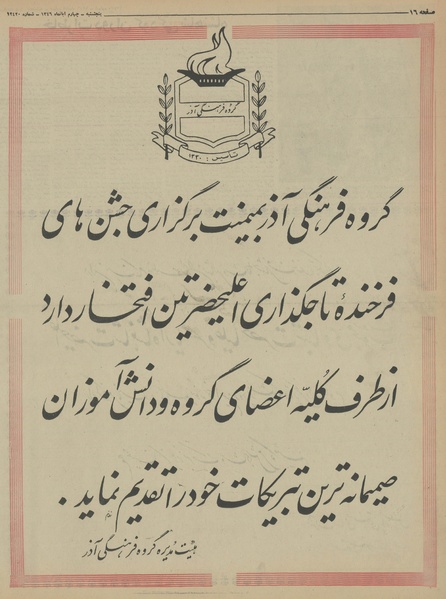 صفحه ۱۶
پنجشنبه – چهارم آبانماه ۱۳۴۶ – شماره ۱۲۴۲۰
گروه فرهنگی آذر
تأسیس : ۱۳۳۰
گروه فرهنگی آذر بمیمنت برگزاری جشن های
فرخندهٔ تاجگذاری اعلیحضرتین افتخار دارد
از طرف کلیّه اعضای گروه و دانش آموزان
صمیمانه ترین تبریکات خود را تقدیم نماید .
هیئت مدیره گروه فرهنگی آذر